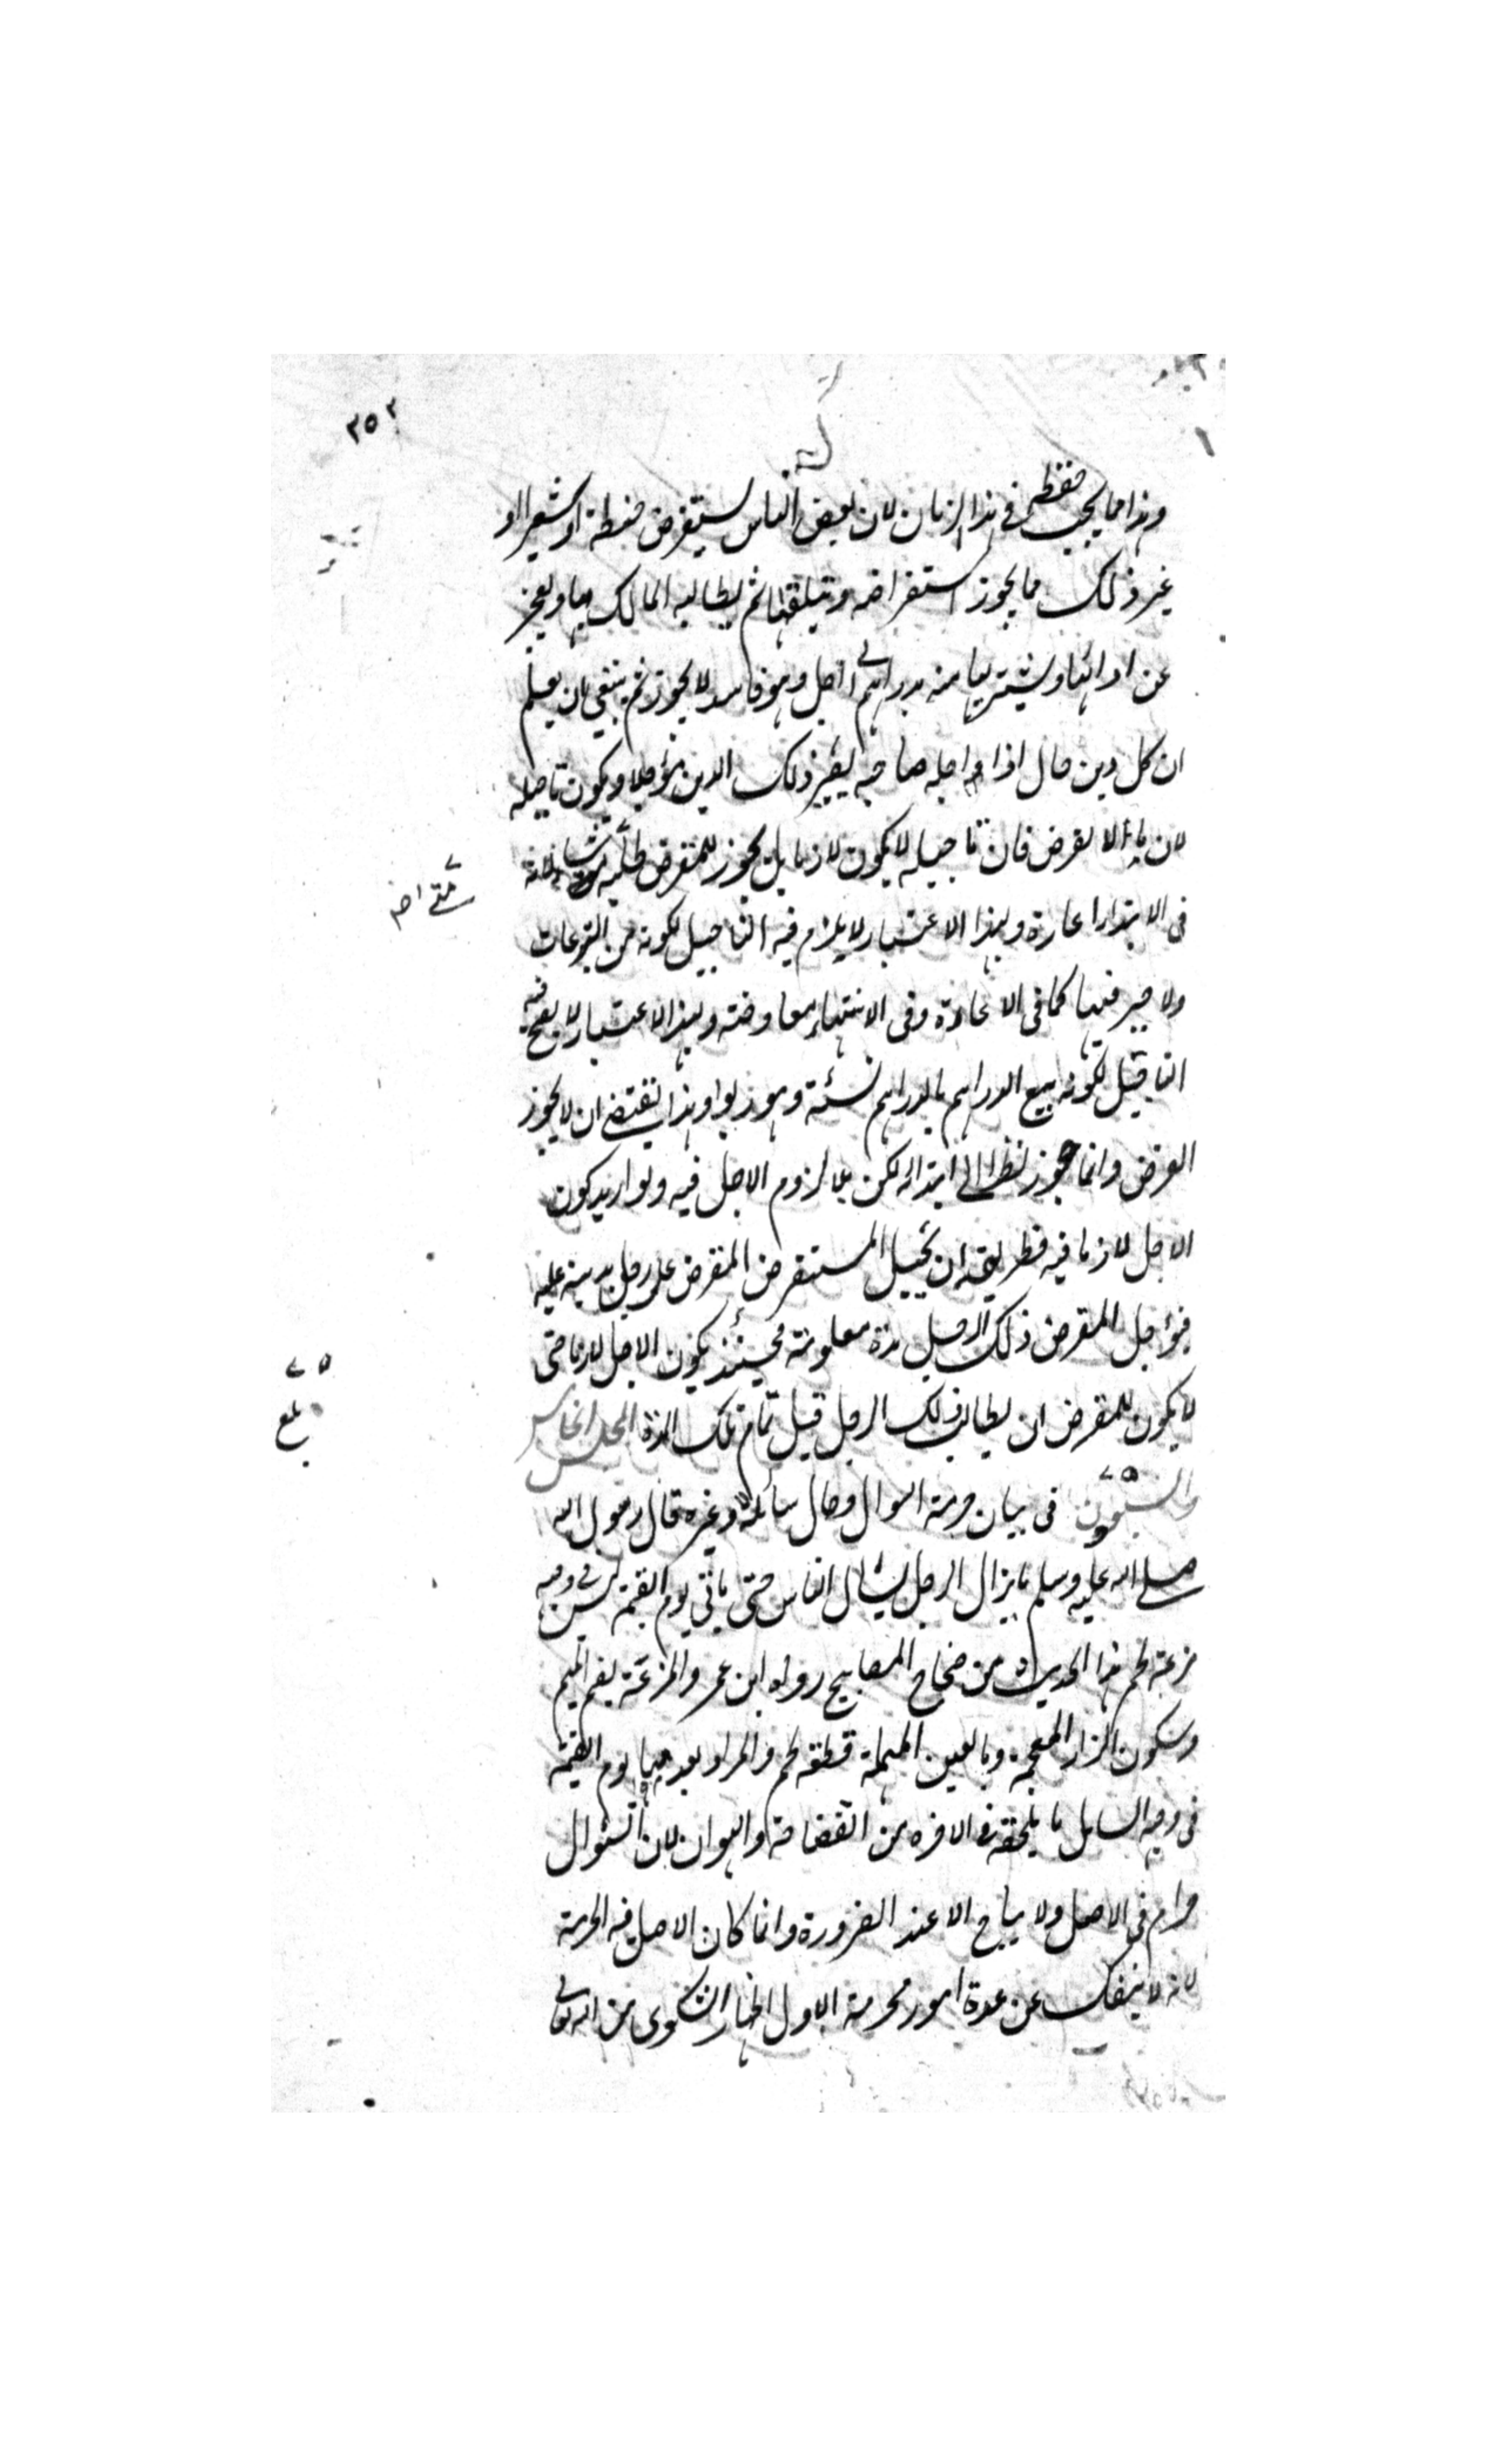 ٢٥٢
وهذا مما يجب حفظه في هذا الزمان لان بعض الناس يستقرض حنطة او شعيرا او
غير ذلك مما يجوز استقراضه ويتلفها ثم يطالبه المالك بها ويعجز
عن ادائها ويشتريها منه بدراهم الى اجل وهو فاسد لا يجوز ثم ينبغي ان يعلم
ان كل دين حال اذا اجله صاحبه يصير ذلك الدين مؤجلا ويكون تأجيله
لازما الا القرض فان تاجيله لا يكون لازما بل يجوز للمقرض طلبه متى شاء لانه
في الابتداء اعارة وبهذا الاعتبار لا يلزم فيه التاجيل لكونه من التبرعات
ولا جبر فيها كما في الاعارة وفي الانتهاء معاوضة وبهذا الاعتبار لا يصح فيه
التاجيل لكونه بيع الدراهم بالدراهم نسئة وهو ربوا وهذا يقتضي ان لا يجوز
القرض وانما جوز نظرا الى ابتدائه لكن بلا لزوم الاجل فيه ولو اريد كون
الاجل لازما فيه فطريقه ان يحيل المستقرض المقرض على رجل بدينه عليه
فيؤجل المقرض ذلك الرجل مدة معلومة فحينئذ يكون الاجل لازما حتى
لا يكون للمقرض ان يطالب ذلك الرجل قبل تمام تلك المدة المجلس الخامس
والسبعون في بيان حرمة السوال وحال سائله وغيره قال رسول الله
صلى الله عليه وسلم ما يزال الرجل يسأل الناس حتى يأتي يوم القيمة ليس في وجهه
مزعة لحم هذا الحديث من صحاح المصابيح رواه ابن عمر والمزعة بضم الميم
وسكون الزاء المعجمة وبالعين المهملة قطعة لحم والمراد بعدمها يوم القيمة
في وجه السايل ما يلحقه في الاخرة من الفضاحة والهوان لان السؤال
حرام في الاصل ولا يباح الا عند الضرورة وانما كان الاصل فيه الحرمة
لانه لا ينفك عن عدة امور محرمة الاول اظهار الشكوى من الله تعالى